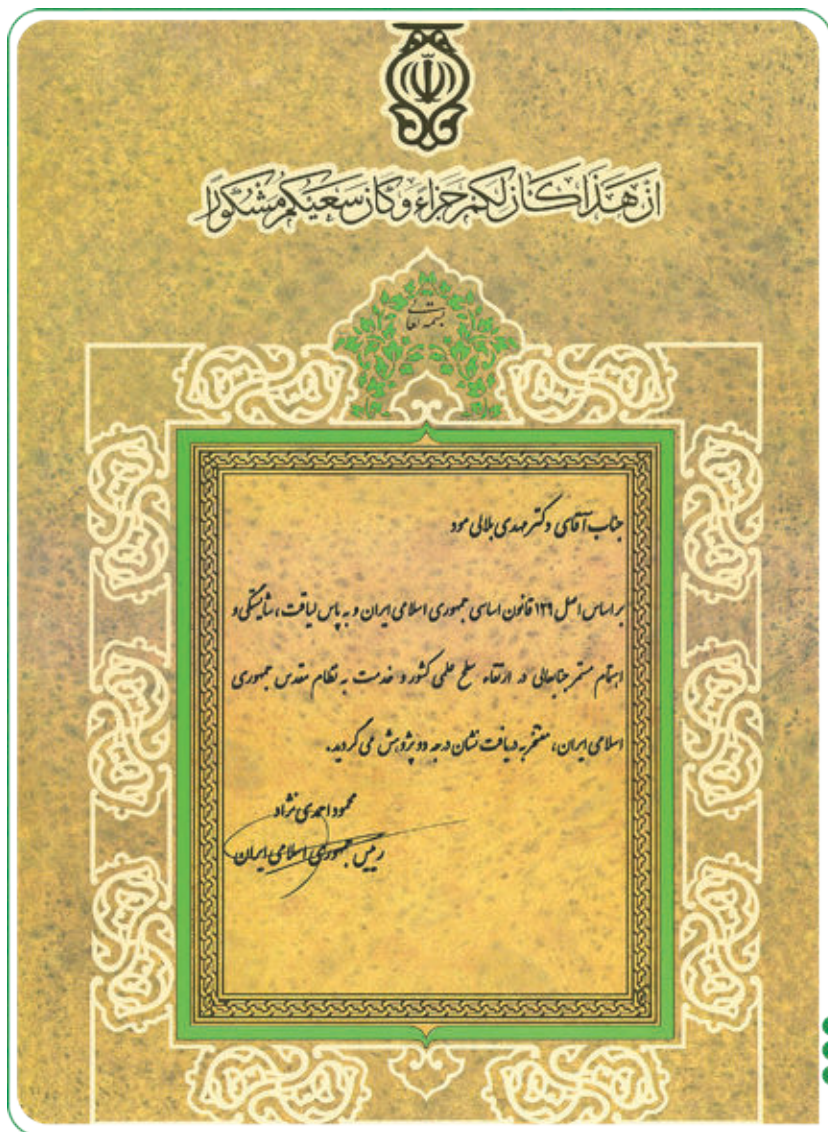 ان هذا کان لکم جزاء وکان سعیکم مشکورا
بسمه تعالی
جناب آقای دکتر مهدی بلالی مود
بر اساس اصل ۱۲۹ قانون اساسی جمهوری اسلامی ایران و به پاس لیاقت، شایستگی و
اهتمام مستمر جنابعالی در ارتقاء سطح علمی کشور و خدمت به نظام مقدس جمهوری
اسلامی ایران، مفتخر به دریافت نشان درجه دو پژوهش می گردید.
محمود احمدی نژاد
رئیس جمهوری اسلامی ایران